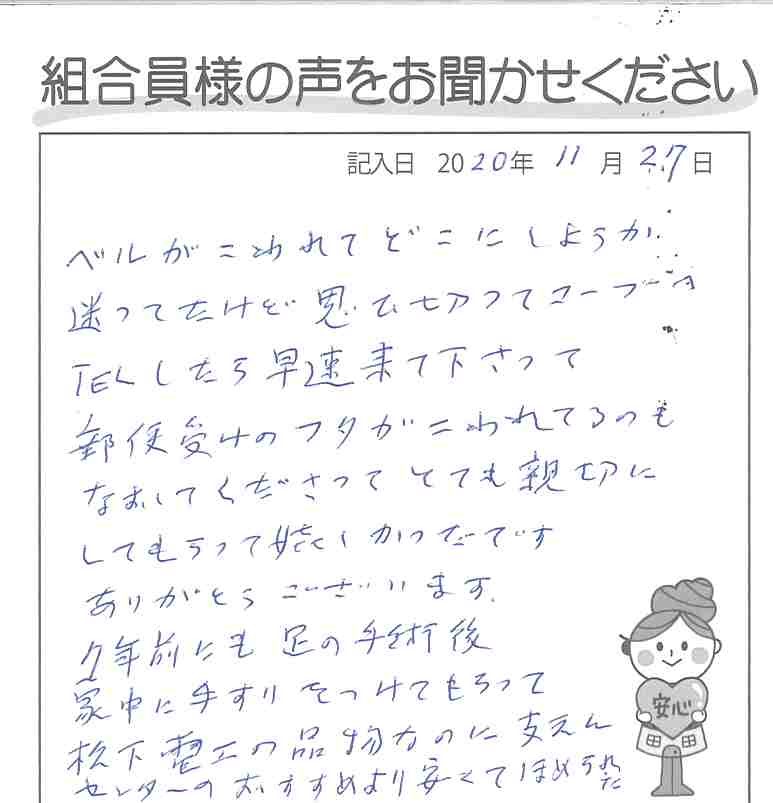 組合員様の声をお聞かせください
記入日 2020年 11月 27日
ベルがこわれてどこにしようか
迷ってたけど思い切ってコープへ
TELしたら早速来て下さって
郵便受けのフタがこわれてるのも
なおしてくださってとても親切に
してもらって嬉しかったです
ありがとうございます。
2年前にも足の手術後
家中に手すりをつけてもらって
松下電工の品物なのに支えん
センターのおすすめより安くてほめられた
安心